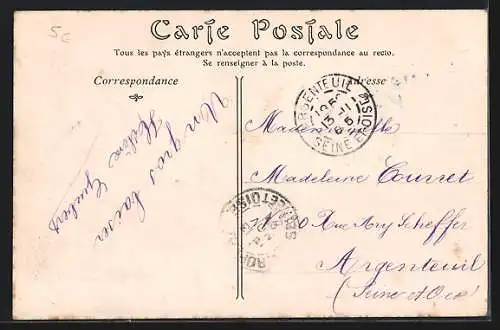 5€
Carte Postale
Tous les pays étrangers n'acceptent pas la correspondance au recto.
Se renseigner à la poste.
Correspondance
Adresse
Un gros baiser
Hélène
ARGENTEUIL
13-11
SEINE ET OISE
Mademoiselle
Madeleine
Rue Ary Scheffer
Argenteuil
(Seine et Oise)